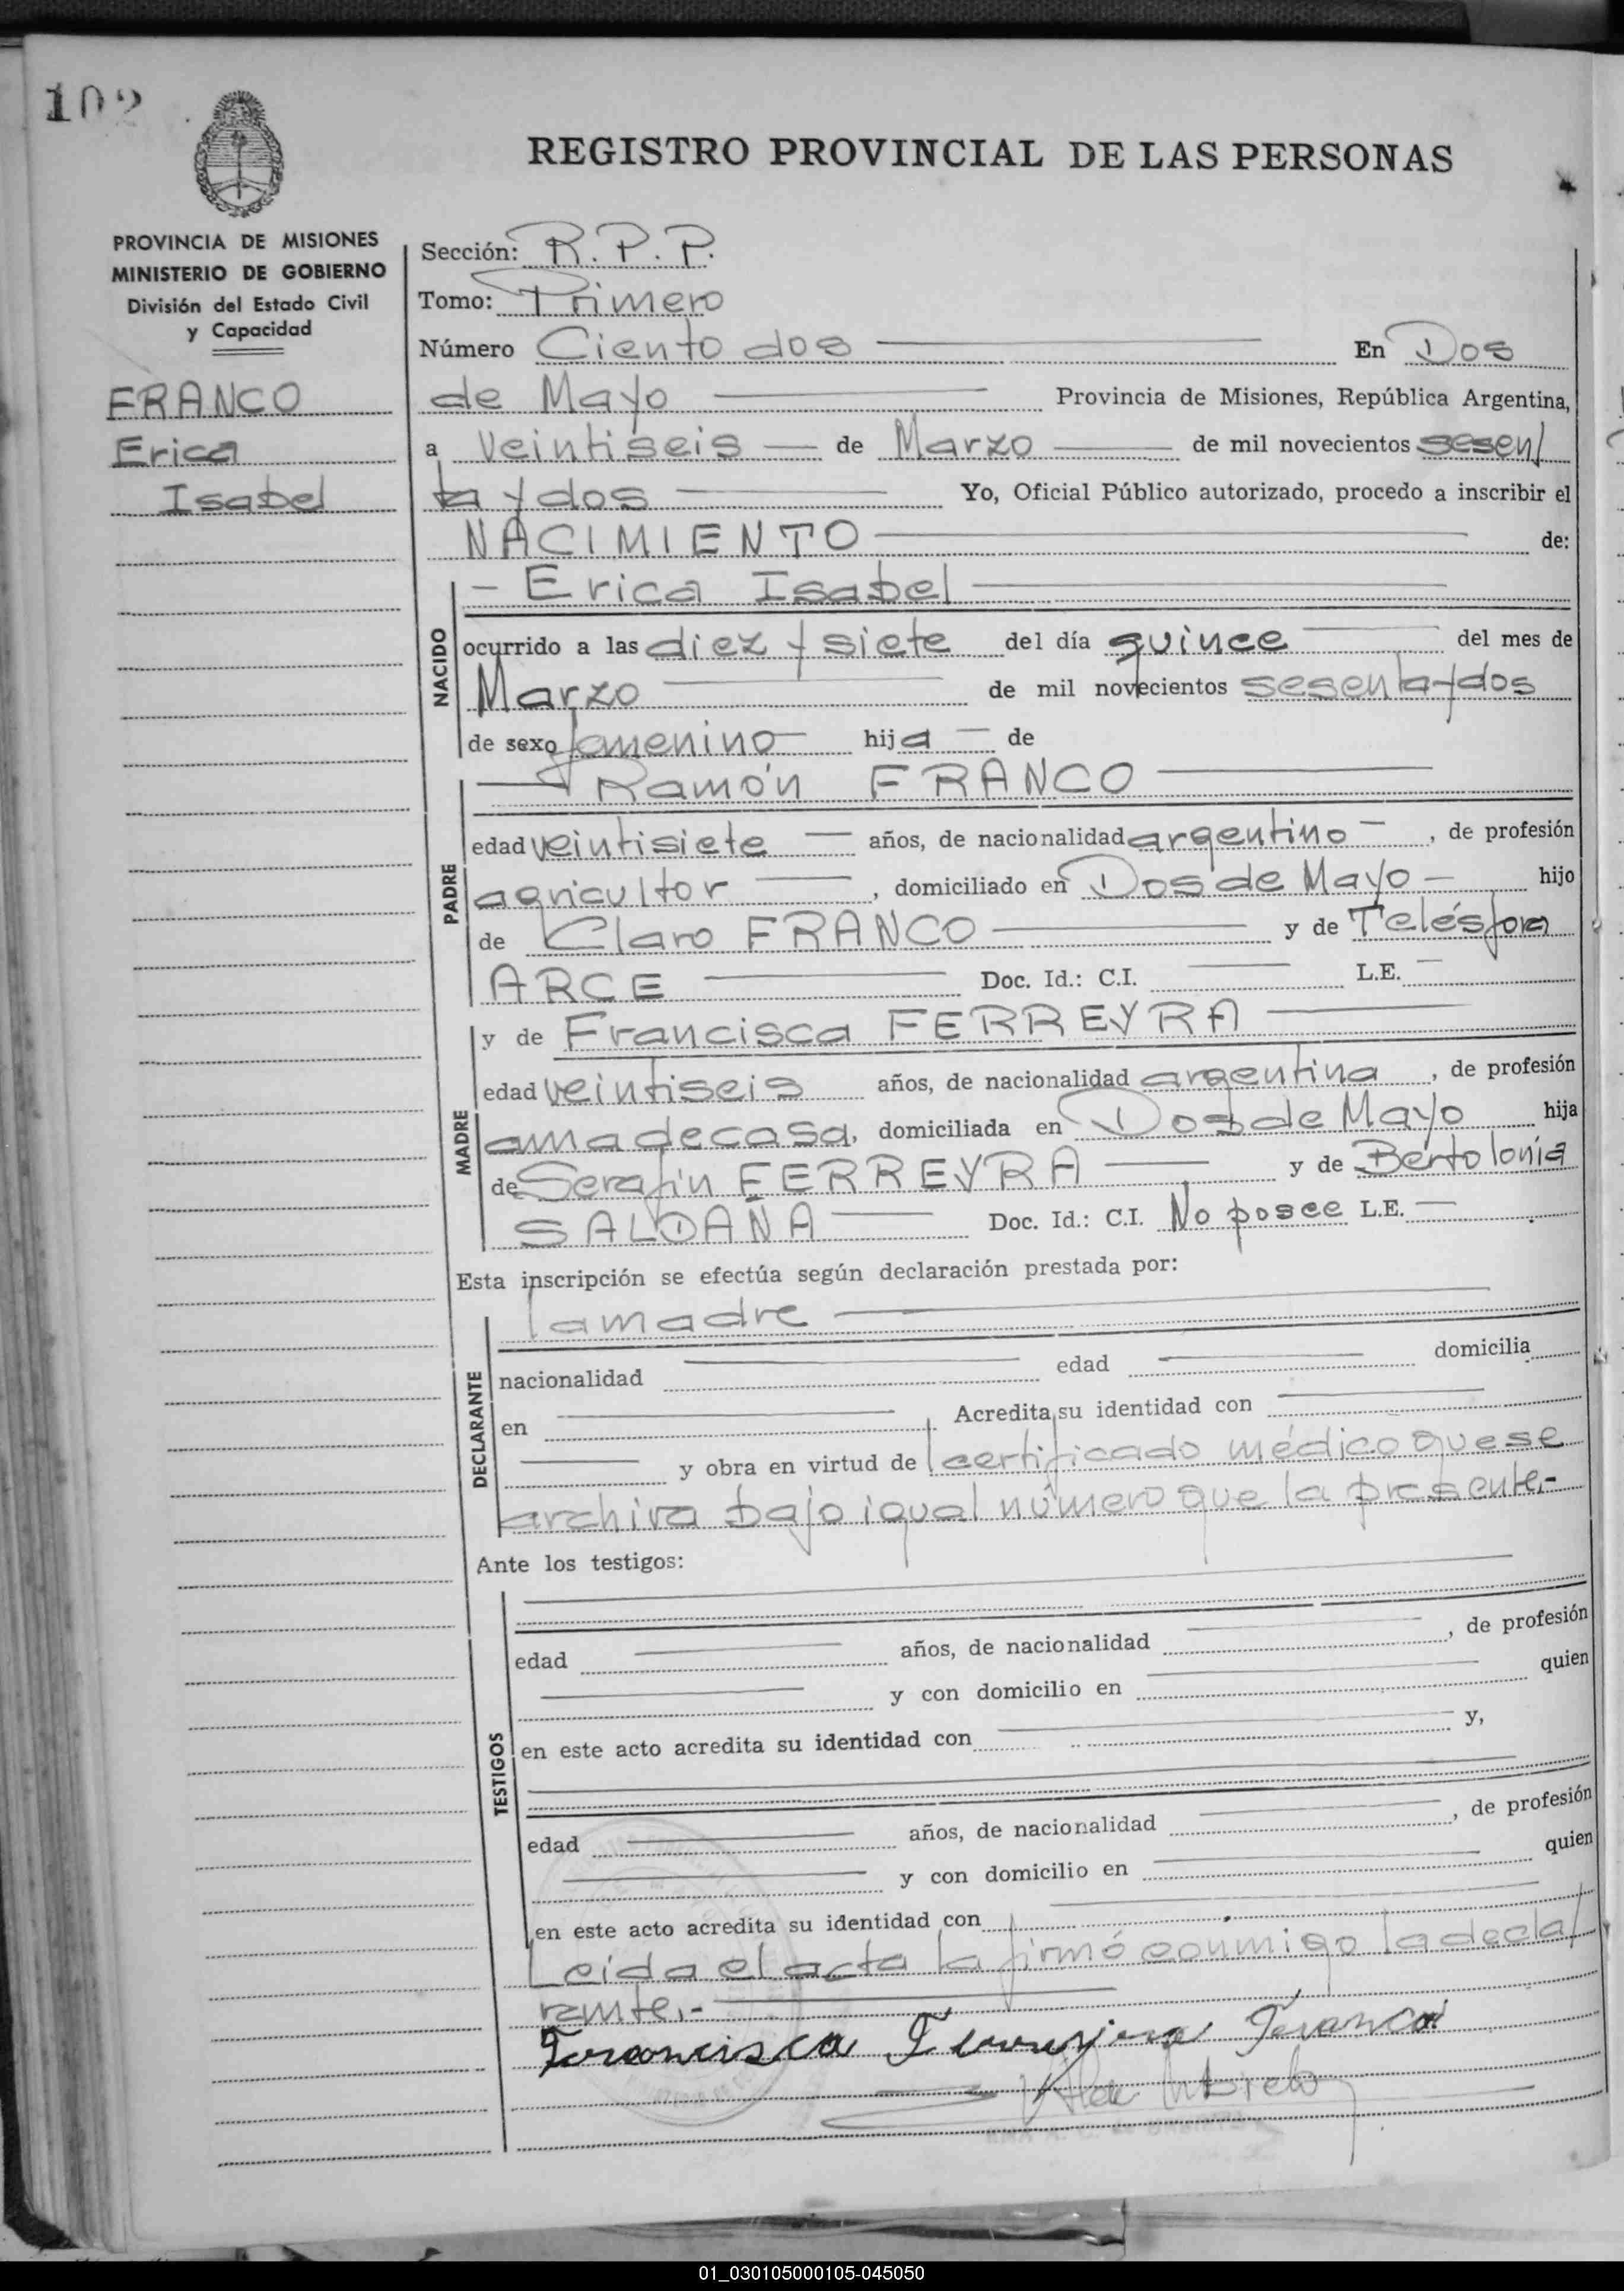 102
REGISTRO PROVINCIAL DE LAS PERSONAS
PROVINCIA DE MISIONES
MINISTERIO DE GOBIERNO
División del Estado Civil
y Capacidad
FRANCO
Erica
Isabel
Sección: R.P.P.
Tomo: Primero
Número Ciento dos En Dos
de Mayo Provincia de Misiones, República Argentina,
a veintiseis de Marzo de mil novecientos sesen/
ta y dos Yo, Oficial Público autorizado, procedo a inscribir el
NACIMIENTO de:
NACIDO
- Erica Isabel
ocurrido a las diez y siete del día quince del mes de
Marzo de mil novecientos sesenta y dos
de sexo femenino hija de
PADRE
Ramón FRANCO
edad veintisiete años, de nacionalidad argentino, de profesión
agricultor, domiciliado en Dos de Mayo hijo
de Claro FRANCO y de Telésfora
ARCE Doc. Id.: C.I. L.E.
MADRE
y de Francisca FERREYRA
edad veintiseis años, de nacionalidad argentina, de profesión
ama de casa, domiciliada en Dos de Mayo hija
de Serafin FERREYRA y de Bertolonia
SALDAÑA Doc. Id.: C.I. No posee L.E.
Esta inscripción se efectúa según declaración prestada por:
DECLARANTE
la madre
nacionalidad edad domicilia
en Acredita su identidad con
y obra en virtud de certificado médico que se
archiva bajo igual número que la presente.-
Ante los testigos:
TESTIGOS
edad años, de nacionalidad, de profesión
y con domicilio en quien
en este acto acredita su identidad con y,
edad años, de nacionalidad, de profesión
y con domicilio en quien
en este acto acredita su identidad con
Leida el acta la firmó conmigo la decla/
rante.-
Francisca Ferreyra Franco
01_030105000105-045050